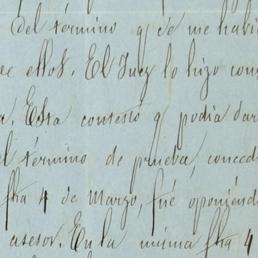 del término q. se me habi
ee ellos. El Juez lo hizo con
a, Esta contestó q. podia dar
el término de prueva, conced
fha 4 de Marzo, fué oponiend
asesor. En la misma fha 4